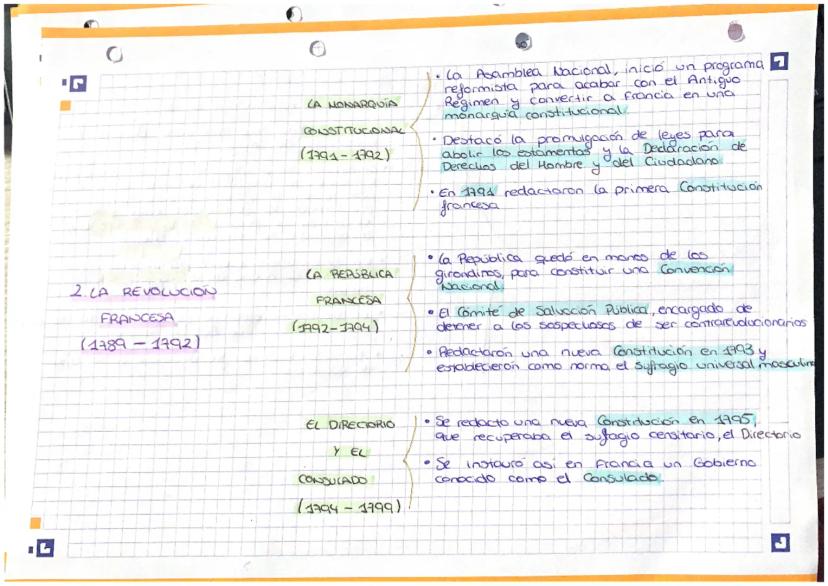 2. LA REVOLUCIÓN
FRANCESA
(1789 - 1792)
LA MONARQUÍA
CONSTITUCIONAL
(1791 - 1792)
• La Asamblea Nacional, inició un programa
reformista para acabar con el Antiguo
Régimen y convertir a Francia en una
monarquía constitucional.
• Destacó la promulgación de leyes para
abolir los estamentos y la Declaración de
Derechos del Hombre y del Ciudadano.
• En 1791 redactaron la primera Constitución
francesa
LA REPÚBLICA
FRANCESA
(1792-1794)
• La República quedó en manos de los
girondinos, para constituir una Convención
Nacional.
• El Comité de Salvación Pública, encargado de
detener a los sospechosos de ser contrarevolucionarios
• Redactarón una nueva Constitución en 1793 y
establecierón como norma el sufragio universal masculino
EL DIRECTORIO
Y EL
CONSULADO
(1794 - 1799)
• Se redacto una nueva Constitución en 1795,
que recuperaba el sufragio censitario, el Directorio
• Se instauró asi en Francia un Gobierno
conocido como el Consulado.